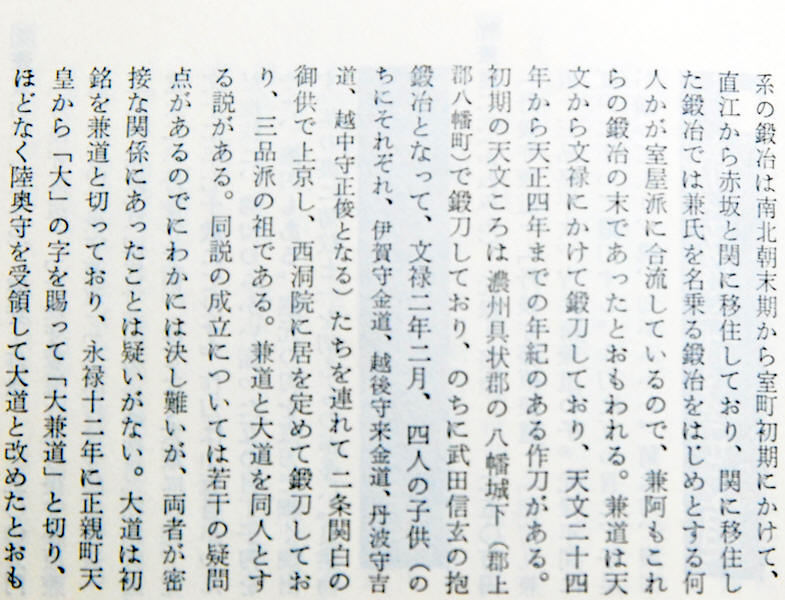 系の鍛冶は南北朝末期から室町初期にかけて、
直江から赤坂と関に移住しており、関に移住し
た鍛冶では兼氏を名乗る鍛冶をはじめとする何
人かが室屋派に合流しているので、兼阿もこれ
らの鍛冶の末であったとおもわれる。兼道は天
文から文禄にかけて鍛刀しており、天文二十四
年から天正四年までの年紀のある作刀がある。
初期の天文ころは濃州具状郡の八幡城下（郡上
郡八幡町）で鍛刀しており、のちに武田信玄の抱
鍛冶となって、文禄二年二月、四人の子供（の
ちにそれぞれ、伊賀守金道、越後守来金道、丹波守吉
道、越中守正俊となる）たちを連れて二条関白の
御供で上京し、西洞院に居を定めて鍛刀してお
り、三品派の祖である。兼道と大道を同人とす
る説がある。同説の成立については若干の疑問
点があるのでにわかには決し難いが、両者が密
接な関係にあったことは疑いがない。大道は初
銘を兼道と切っており、永禄十二年に正親町天
皇から「大」の字を賜って「大兼道」と切り、
ほどなく陸奥守を受領して大道と改めたとおも